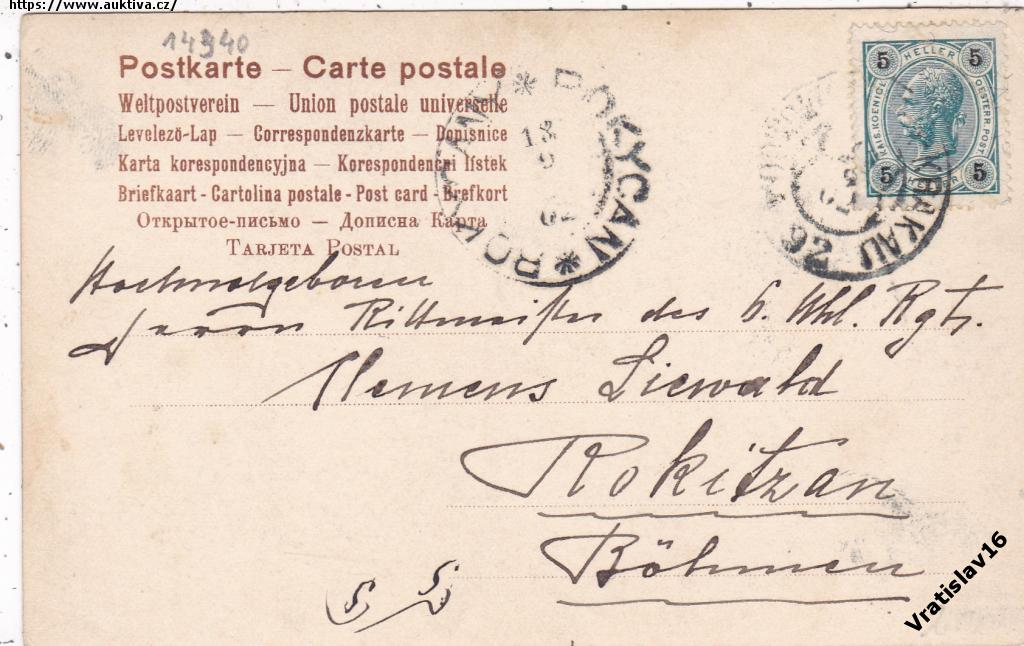 https://www.auktiva.cz/
14940
Postkarte – Carte postale
Weltpostverein — Union postale universelle
Levelező-Lap – Correspondenzkarte – Dopisnice
Karta korespondencyjna – Korespondenční lístek
Briefkaart - Cartolina postale - Post card - Brefkort
Открытое-письмо — Дописна Карта
Tarjeta Postal
ROKYCANY * ROKYCAN *
5 HELLER 5
KAIS. KOENIGL. OESTERR. POST
5 HELLER 5
KRAKAU
92
Hochwolgeboren
Herrn Rittmeister des 6. Uhl. Rgts.
Klemens Liewald
Rokitzan
Böhmen
Vratislav16